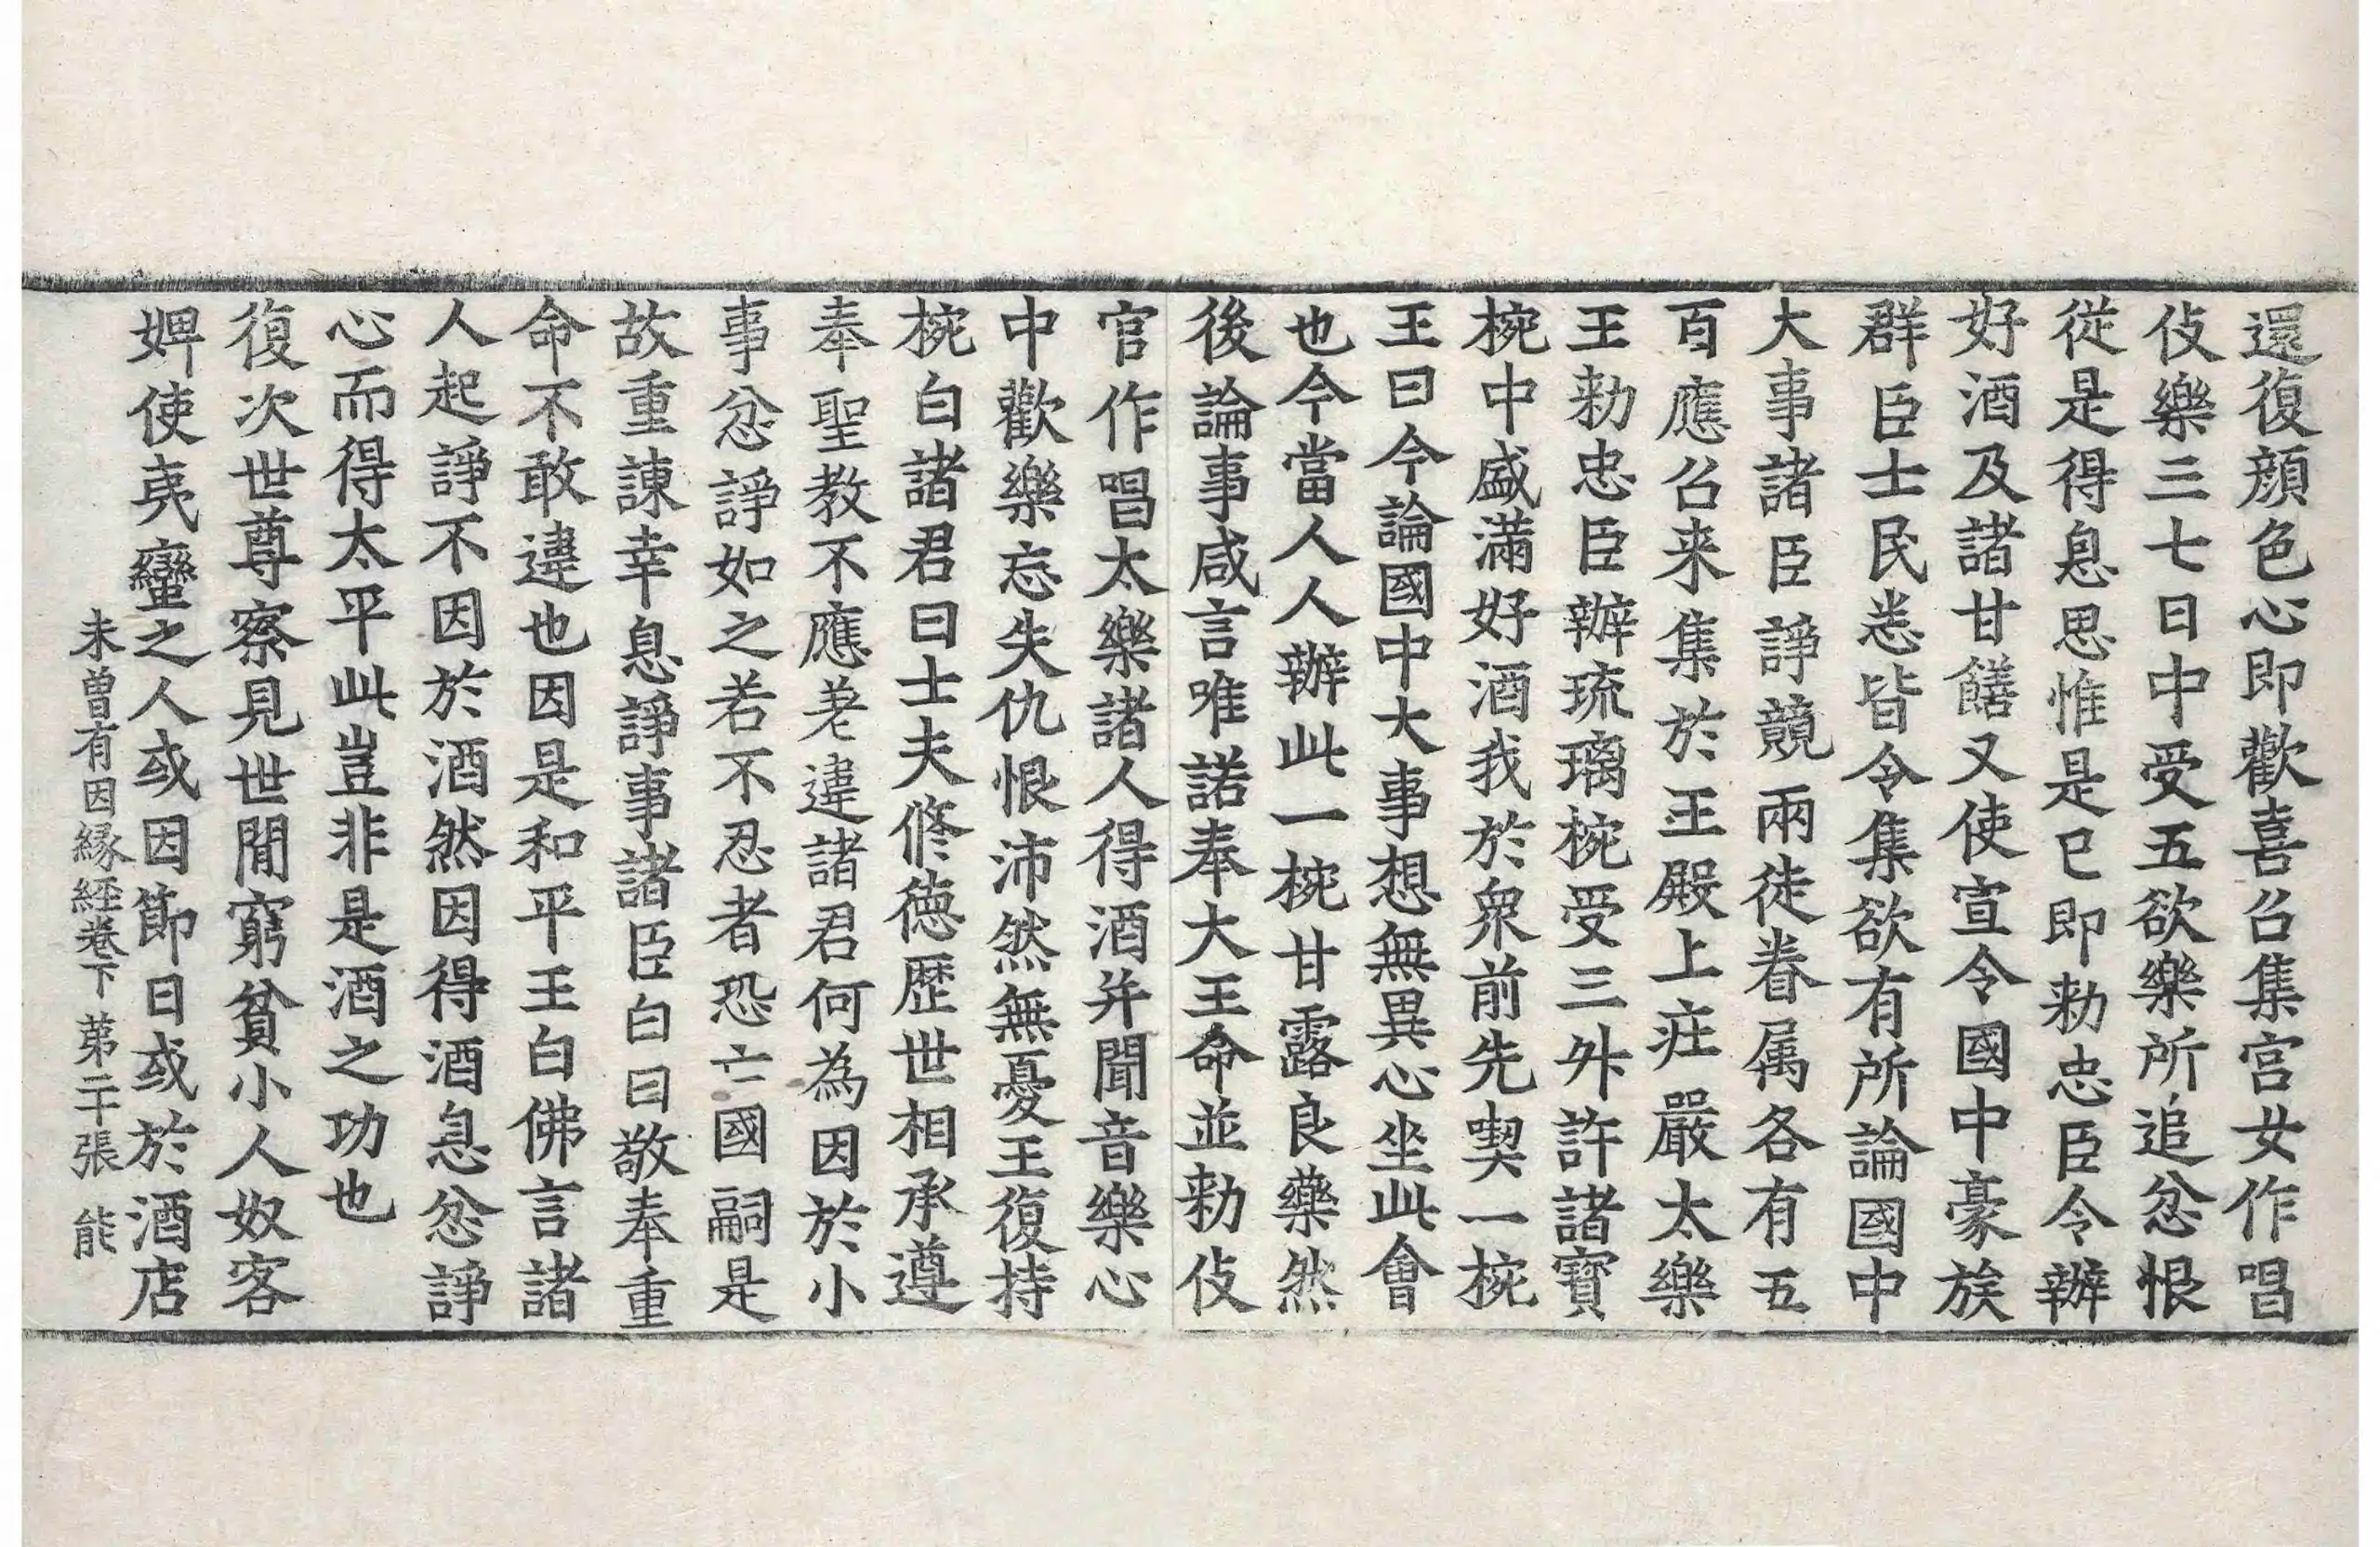 還復顔色心即歡喜召集宫女作唱
伎樂三七日中受五欲樂所追忿恨
從是得息思惟是已即勑忠臣令辦
好酒及諸甘饍又使宣令國中豪族
群臣士民悉皆令集欲有所論國中
大事諸臣諍競兩徒眷属各有五
百應召来集於王殿上莊嚴太樂
王勑忠臣辦琉璃椀受三升許諸寶
椀中盛滿好酒我於衆前先喫一椀
王曰今論國中大事想無異心坐此會
也今當人人辦此一椀甘露良藥然
後論事咸言唯諾奉大王命並勑伎
官作唱太樂諸人得酒并聞音樂心
中歡樂忘失仇恨沛然無憂王復持
椀白諸君曰士夫修徳歴世相承遵
奉聖教不應差違諸君何為因於小
事忿諍如之若不忍者恐亡國嗣是
故重諫幸息諍事諸臣白曰敬奉重
命不敢違也因是和平王白佛言諸
人起諍不因於酒然因得酒息忿諍
心而得太平此豈非是酒之功也
復次世尊察見世間窮貧小人奴客
婢使夷蠻之人或因節日或於酒店
未曾有因縁経卷下 苐二十張 能